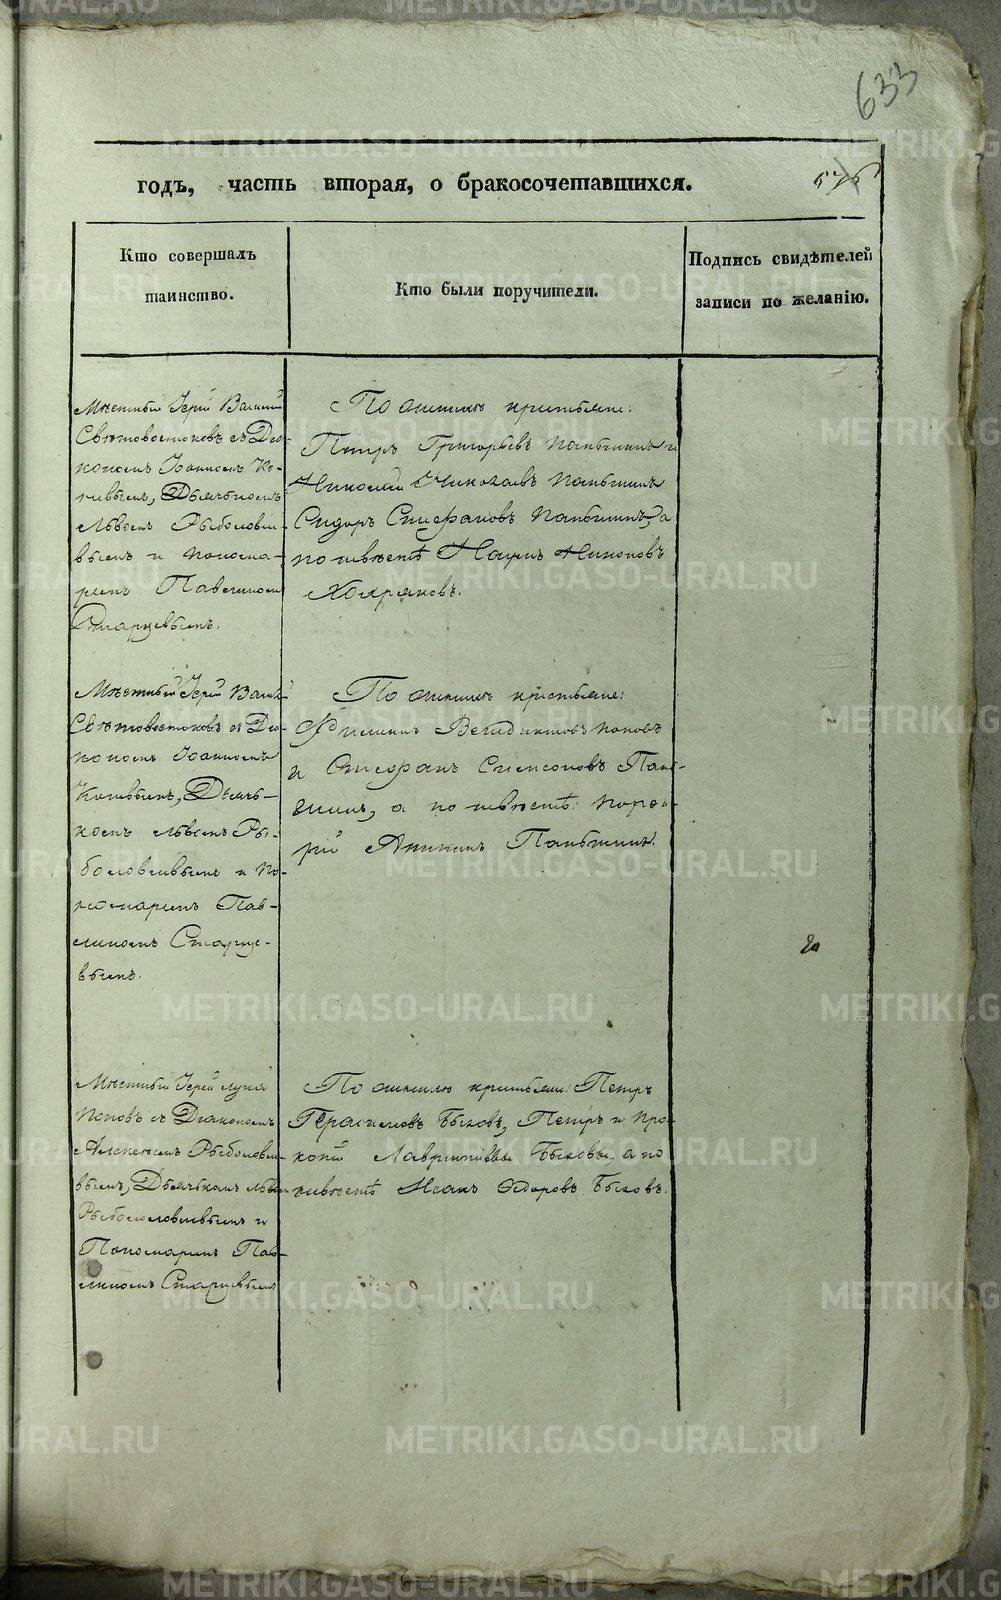 633
годъ, часть вторая, о бракосочетавшихся.
Кто совершалъ
таинство.
Кто были поручители.
Подпись свидѣтелей
записи по желанію.
Мѣстный Іерей Василій
Свѣтовостоковъ съ Діа-
кономъ Іоанномъ
Дьячкомъ
Львомъ Рыболовле-
вымъ и Понома-
ремъ Павлиномъ
Старцевымъ.
По женихѣ крестьяне:
Петръ Григорьевъ Паньшинъ и
Николай Николаевъ Паньшинъ
Сидоръ Стефановъ Паньшинъ, а
по невѣстѣ Наумъ Никоновъ
Хохряковъ.
Мѣстный Іерей Василій
Свѣтовостоковъ съ Діа-
кономъ Іоанномъ
Дьяч-
комъ Львомъ Ры-
боловлевымъ и По-
номаремъ Пав-
линомъ Старце-
вымъ.
По женихѣ крестьяне:
Филиппъ Поповъ
и Стефанъ Симеоновъ Пань-
шинъ, а по невѣстѣ: Порфи-
рій Аникинъ Паньшинъ.
Мѣстный Іерей Лука
Поповъ съ Діакономъ
Алексѣемъ Рыболовле-
вымъ, Дьячкомъ Львомъ
Рыболовлевымъ и
Пономаремъ Пав-
линомъ Старцевымъ
По женихѣ крестьяне: Петръ
Герасимовъ Быковъ, Петръ и Про-
копій Лаврентьевы Быковы, а по
невѣстѣ Исакъ Ѳедоровъ Быковъ.
METRIKI.GASO-URAL.RU